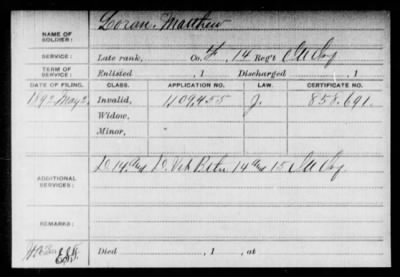 NAME OF SOLDIER: Loran, Matthew
SERVICE: Late rank, Co. F, 14 Reg't Inf.
TERM OF SERVICE: Enlisted , 1 Discharged , 1
DATE OF FILING. CLASS. APPLICATION NO. LAW. CERTIFICATE NO.
1892 May Invalid, 1109,455 J. 858.691.
Widow,
Minor,
ADDITIONAL SERVICES: D. 14 and D. Vet Batn 14 and 15 Inf.
REMARKS:
Died , 1 , at